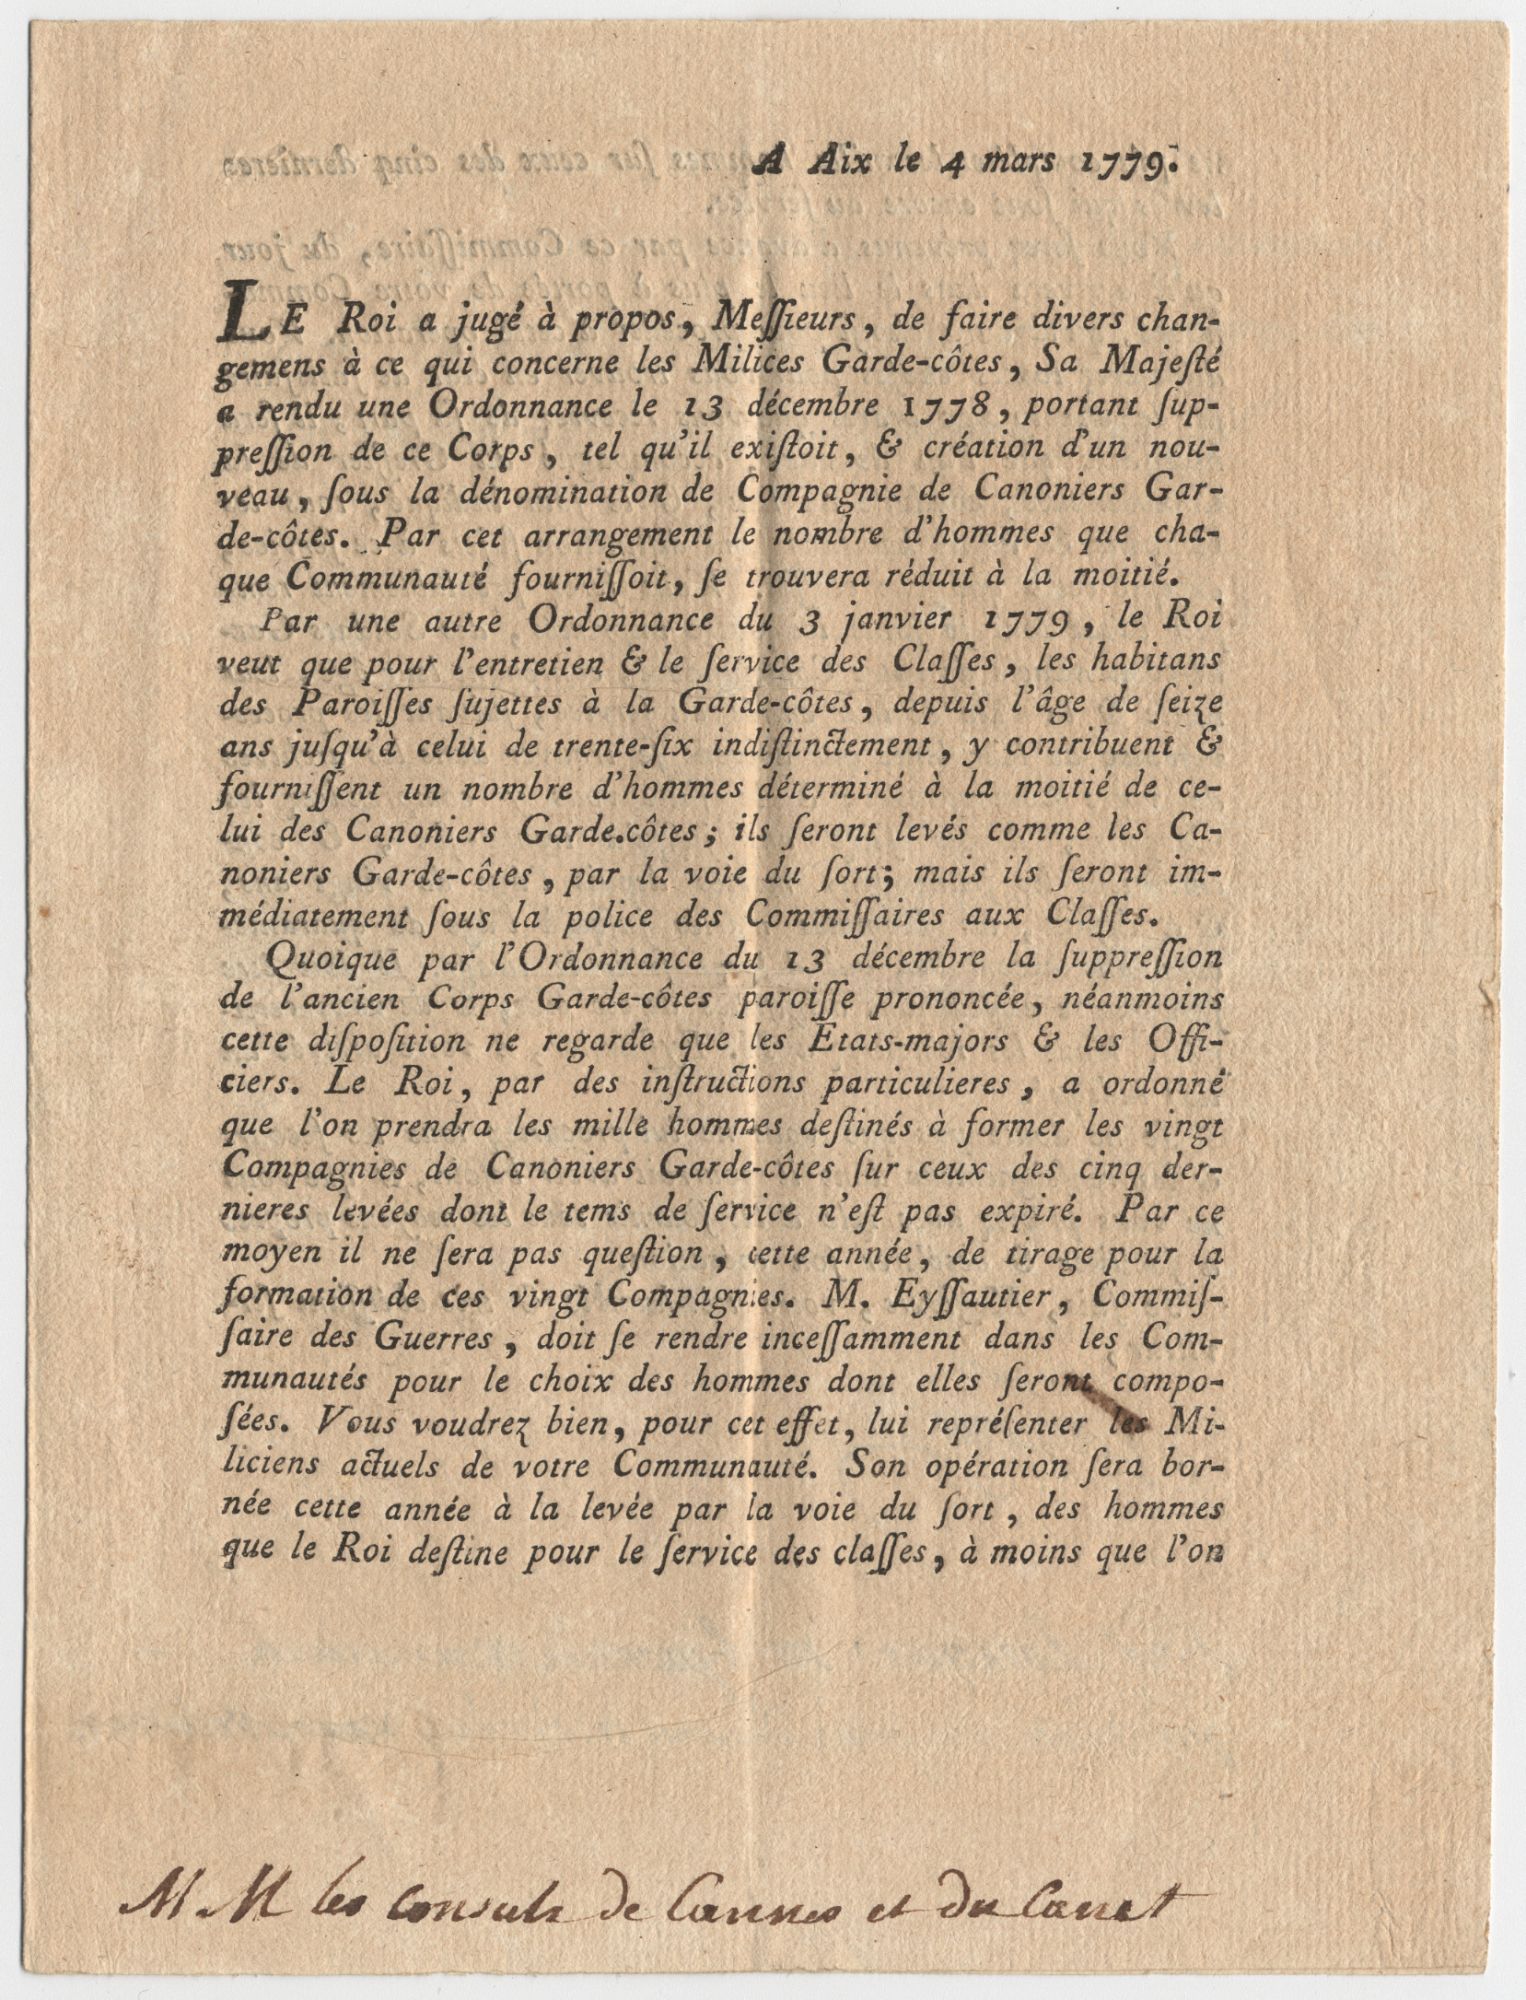 A Aix le 4 mars 1779.
LE Roi a jugé à propos, Meſſieurs, de faire divers chan-
gemens à ce qui concerne les Milices Garde-côtes, Sa Majeſté
a rendu une Ordonnance le 13 décembre 1778, portant ſup-
preſſion de ce Corps, tel qu'il exiſtoit, & création d'un nou-
veau, ſous la dénomination de Compagnie de Canoniers Gar-
de-côtes. Par cet arrangement le nombre d'hommes que cha-
que Communauté fourniſſoit, ſe trouvera réduit à la moitié.
Par une autre Ordonnance du 3 janvier 1779, le Roi
veut que pour l'entretien & le ſervice des Claſſes, les habitans
des Paroiſſes ſujettes à la Garde-côtes, depuis l'âge de ſeize
ans juſqu'à celui de trente-ſix indiſtinctement, y contribuent &
fourniſſent un nombre d'hommes déterminé à la moitié de ce-
lui des Canoniers Garde.côtes; ils ſeront levés comme les Ca-
noniers Garde-côtes, par la voie du ſort; mais ils ſeront im-
médiatement ſous la police des Commiſſaires aux Claſſes.
Quoique par l'Ordonnance du 13 décembre la ſuppreſſion
de l'ancien Corps Garde-côtes paroiſſe prononcée, néanmoins
cette diſpoſition ne regarde que les Etats-majors & les Offi-
ciers. Le Roi, par des inſtructions particulieres, a ordonné
que l'on prendra les mille hommes deſtinés à former les vingt
Compagnies de Canoniers Garde-côtes ſur ceux des cinq der-
nieres levées dont le tems de ſervice n'eſt pas expiré. Par ce
moyen il ne ſera pas queſtion, cette année, de tirage pour la
formation de ces vingt Compagnies. M. Eyſſautier, Commiſ-
ſaire des Guerres, doit ſe rendre inceſſamment dans les Com-
munautés pour le choix des hommes dont elles ſeront compo-
ſées. Vous voudrez bien, pour cet effet, lui repréſenter les Mi-
liciens actuels de votre Communauté. Son opération ſera bor-
née cette année à la levée par la voie du ſort, des hommes
que le Roi deſtine pour le ſervice des claſſes, à moins que l'on
M. M les consuls de Cannes et du Canet